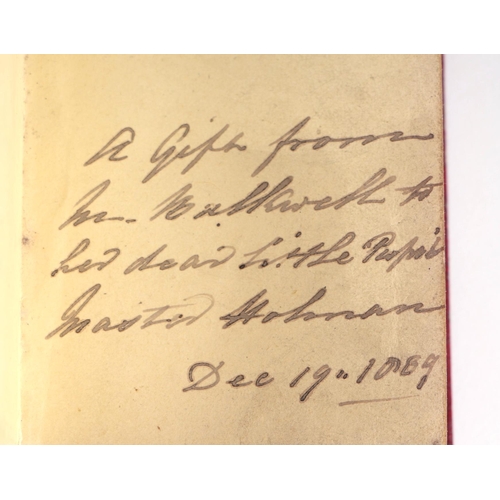 A Gift from
M. Walkwell to
her dear little Pupil
Master Holman
Dec 19" 1889